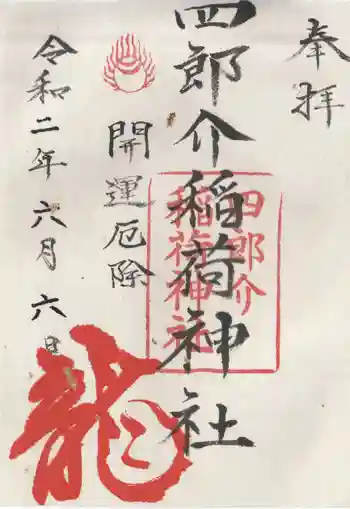 奉拝
四郎介稲荷神社
四郎介
稲荷神社
開運厄除
令和二年六月六日
龍